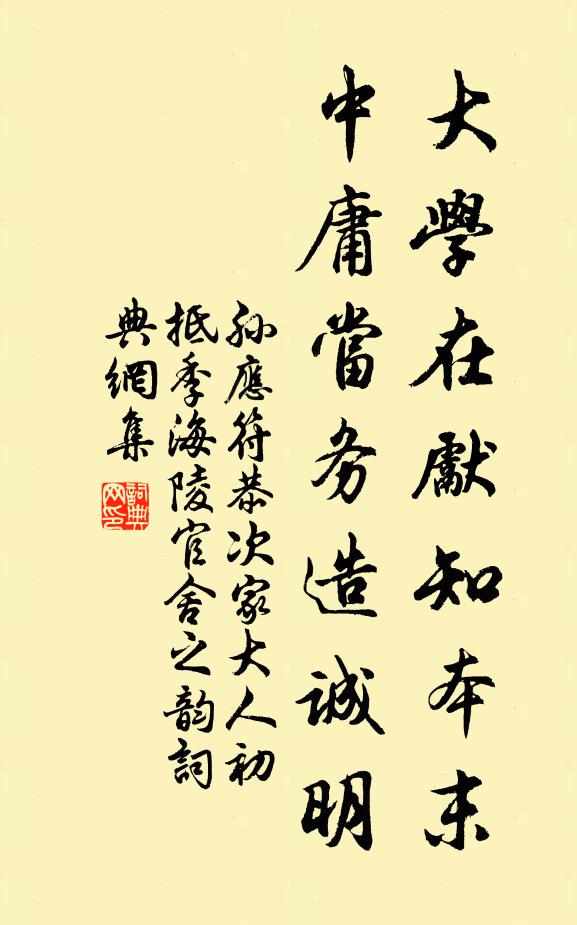 大學在獻知本末
中庸當务造誠明
孫應符恭次家大人初
抵季海陵官舍之韵詞
典網集
詞典
网印